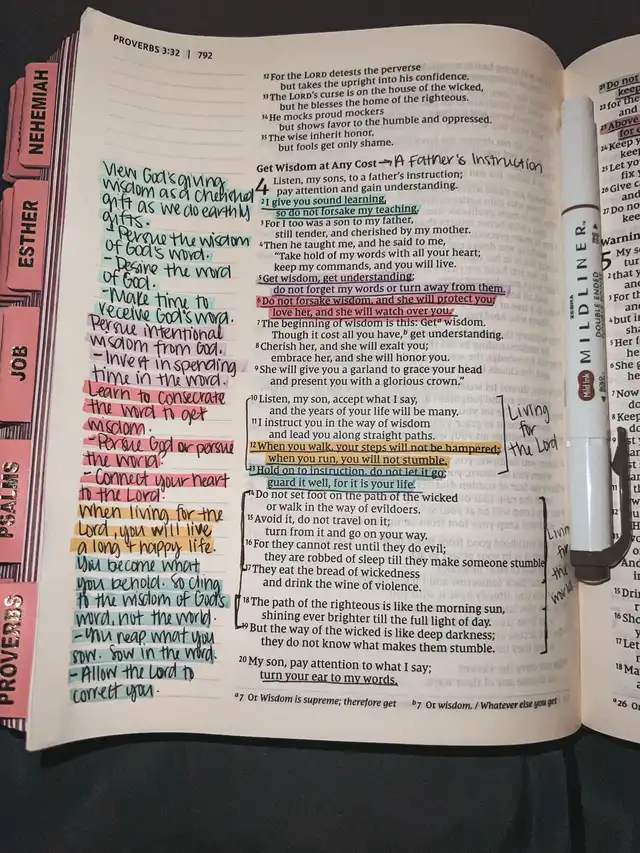 PROVERBS 3:32 | 792
NEHEMIAH
ESTHER
JOB
PSALMS
PROVERBS
View God's giving
wisdom as a cherished
gift as we do earthly
gifts.
- Persue the wisdom
of God's word.
- Desire the word
of God.
- Make time to
receive God's word.
Persue intentional
wisdom from God.
- Invest in spending
time in the word.
Learn to consecrate
the word to get
wisdom.
- Persue God or persue
the word.
- Connect your heart
to the Lord!
When living for the
Lord, you will live
a long & happy life.
You become what
you behold. So cling
to the wisdom of God's
word, not the world.
- You reap what you
sow. Sow in the word.
- Allow the Lord to
correct you.
32 For the LORD detests the perverse
but takes the upright into his confidence.
33 The LORD's curse is on the house of the wicked,
but he blesses the home of the righteous.
34 He mocks proud mockers
but shows favor to the humble and oppressed.
35 The wise inherit honor,
but fools get only shame.
Get Wisdom at Any Cost → A Father's Instruction
4 Listen, my sons, to a father's instruction;
pay attention and gain understanding.
2 I give you sound learning,
so do not forsake my teaching.
3 For I too was a son to my father,
still tender, and cherished by my mother.
4 Then he taught me, and he said to me,
"Take hold of my words with all your heart;
keep my commands, and you will live.
5 Get wisdom, get understanding;
do not forget my words or turn away from them.
6 Do not forsake wisdom, and she will protect you;
love her, and she will watch over you.
7 The beginning of wisdom is this: Get a wisdom.
Though it cost all you have, b get understanding.
8 Cherish her, and she will exalt you;
embrace her, and she will honor you.
9 She will give you a garland to grace your head
and present you with a glorious crown."
10 Listen, my son, accept what I say,
and the years of your life will be many.
11 I instruct you in the way of wisdom
and lead you along straight paths.
12 When you walk, your steps will not be hampered;
when you run, you will not stumble.
13 Hold on to instruction, do not let it go;
guard it well, for it is your life.
Living
for the
Lord
14 Do not set foot on the path of the wicked
or walk in the way of evildoers.
15 Avoid it, do not travel on it;
turn from it and go on your way.
16 For they cannot rest until they do evil;
they are robbed of sleep till they make someone stumble.
17 They eat the bread of wickedness
and drink the wine of violence.
18 The path of the righteous is like the morning sun,
shining ever brighter till the full light of day.
19 But the way of the wicked is like deep darkness;
they do not know what makes them stumble.
for
the
20 My son, pay attention to what I say;
turn your ear to my words.
a 7 Or Wisdom is supreme; therefore get b 7 Or wisdom. / Whatever else you get
ZEBRA
MILDLINER.
DOUBLE ENDED
Mild Ink